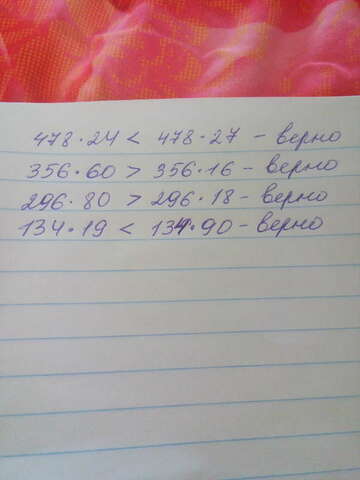 478·24 < 478·27 - верно
356·60 > 356·16 - верно
296·80 > 296·18 - верно
134·19 < 134·90 - верно